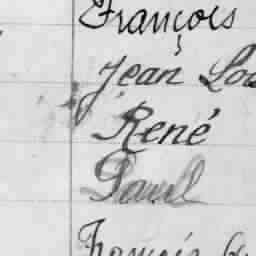 François
Jean Lou
René
Paul
François